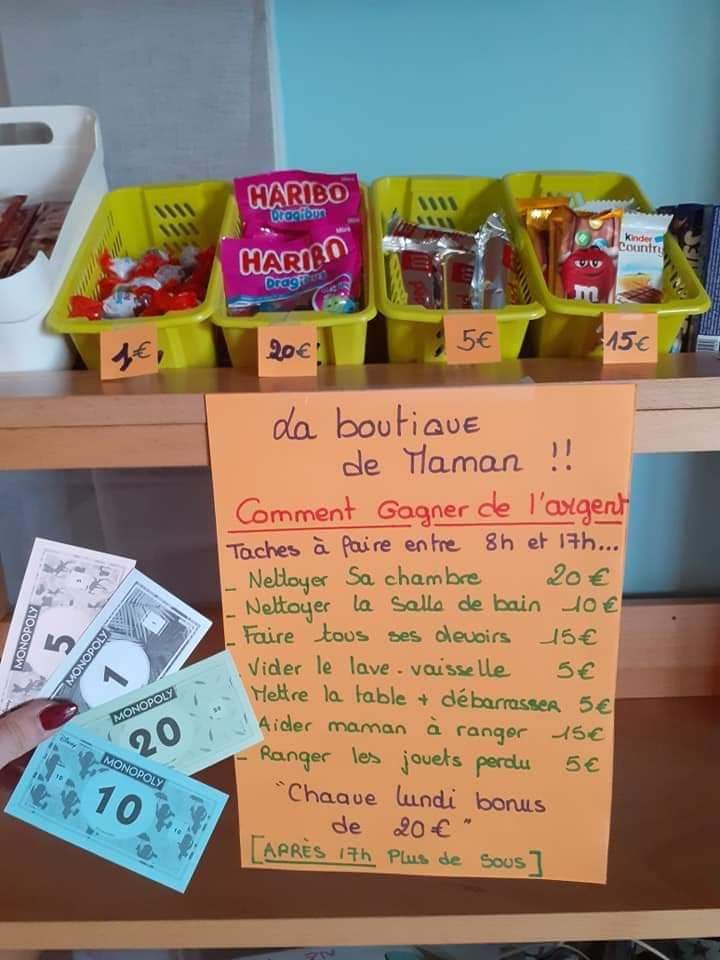 HARIBO
Dragibus
HARIBO
Dragibus
m
Kinder
Country
1€
20€
5€
15€
La boutique
de Maman !!
Comment Gagner de l'argent
Taches à faire entre 8h et 17h...
_ Nettoyer Sa chambre 20€
_ Nettoyer la salle de bain 10€
_ Faire tous ses devoirs 15€
_ Vider le lave-vaisselle 5€
Mettre la table + débarrasser 5€
Aider maman à ranger 15€
- Ranger les jouets perdu 5€
"Chaque lundi bonus
de 20€"
[APRÈS 17h Plus de Sous]
MONOPOLY
5
MONOPOLY
1
MONOPOLY
20
Disney
MONOPOLY
10
10
10